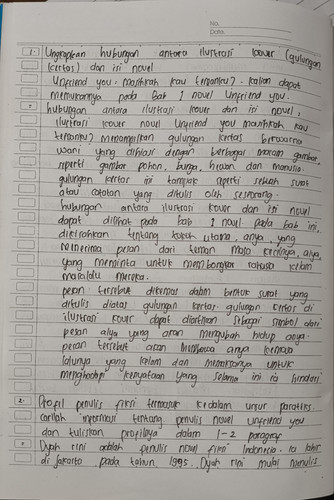 No.
Date.
1. Ungkapkan hubungan antara ilustrasi kover (gulungan
kertas) dan isi novel
Unfriend you: masihkah kau temanku? kalian dapat
menemukannya pada bab 1 novel Unfriend you.
hubungan antara ilustrasi kover dan isi novel.
ilustrasi kover novel Unfriend you masihkah kau
temanku? menampilkan gulungan kertas berwarna
yang dihiasi dengan berbagai macam gambar
seperti gambar pohon, bunga, hewan dan manusia.
gulungan kertas ini tampak seperti sebuah surat
atau catatan yang ditulis oleh seseorang.
hubungan antara ilustrasi kover dan isi novel
dapat dilihat pada bab 1 novel. pada bab ini,
dikisahkan tentang tokoh utama, alya, yang
menerima pesan dari teman masa kecilnya, alya,
yang meminta untuk membongkar rahasia kelam
masalalu mereka.
pesan tersebut dikemas dalam bentuk surat yang
ditulis diatas gulungan kertas. gulungan kertas di
ilustrasi kover dapat diartikan sebagai simbol dari
pesan alya yang akan mengubah hidup anya.
pesan tersebut akan membawa anya kembali
lalunya yang kelam dan memaksanya untuk
menghadapi kenyataan yang selama ini ia hindari
2. Profil penulis fiksi termasuk kedalam unsur parateks.
carilah informasi tentang penulis novel unfriend you
dan tuliskan profilnya dalam 1-2 paragraf
Dyah rini adalah penulis novel fiksi Indonesia. ia lahir
di Jakarta pada tahun 1995. Dyah rini mulai menulis